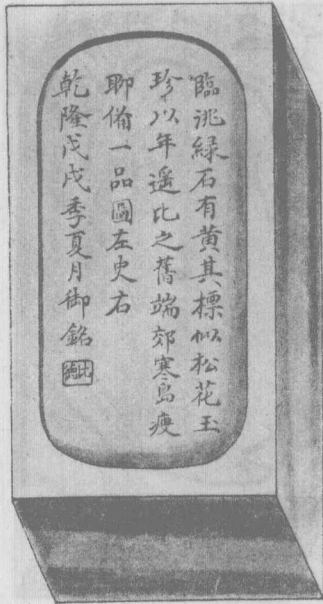 臨洮緑石有黄其標似松花玉
珍以年遥比之舊端郊寒島瘦
聊俻一品圖左史右
乾隆戊戌季夏月御銘
比德